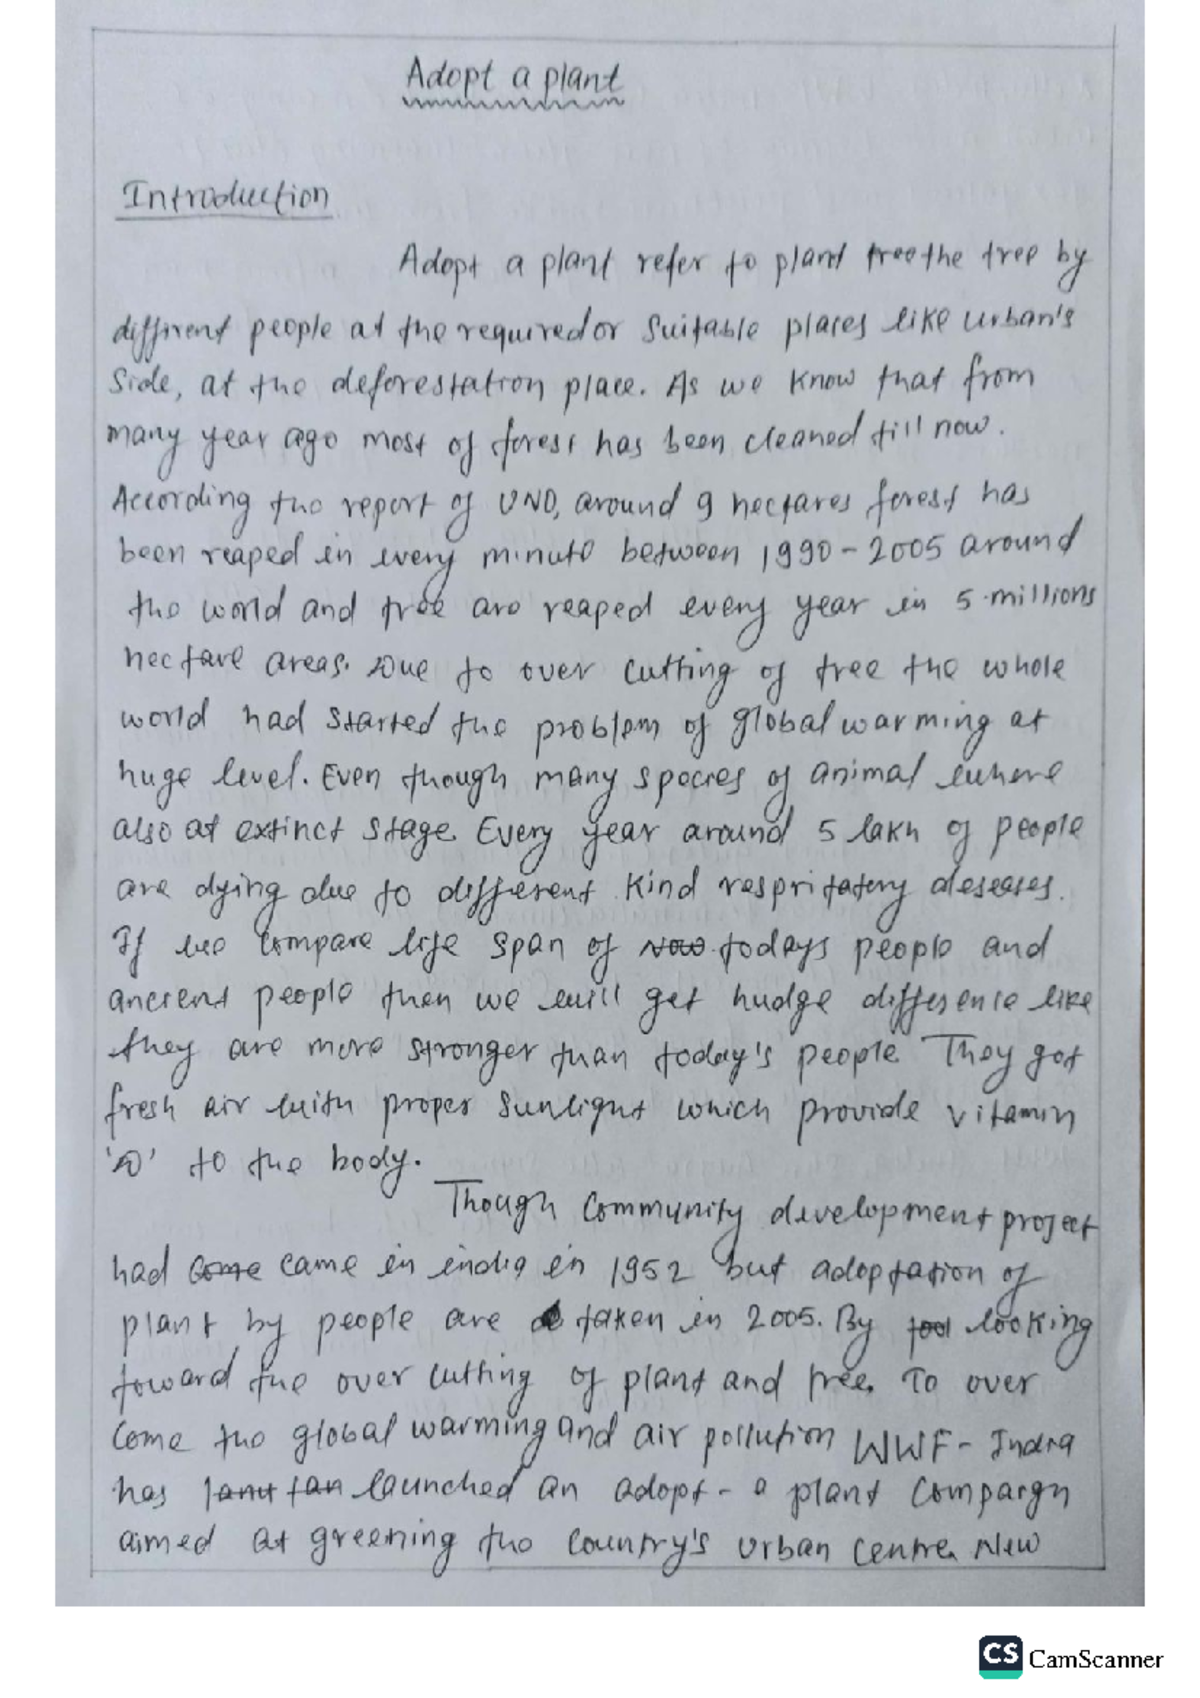 Adopt a plant
Introduction
Adopt a plant refer to plant tree the tree by
diffirent people at the required or suitable places like urban's
side, at the deforestation place. As we know that from
many year ago most of forest has been cleaned till now.
According the report of UNO, around 9 hectares forest has
been reaped in every minute between 1990-2005 around
the world and tree are reaped every year in 5 millions
hectare areas. Due to over cutting of tree the whole
world had started the problem of global warming at
huge level. Even though many species of animal where
also at extinct stage. Every year around 5 lakh of people
are dying due to different kind respritatory deseases.
If we compare life span of Now todays people and
ancient people then we will get hudge difference like
they are more stronger than today's people They got
fresh air with proper sunlight which provide vitamin
'D' to the body.
Though community development project
had come came in india in 1952 but adoptation of
plant by people are taken in 2005. By looking
toward the over cutting of plant and tree. To over
come the global warming and air pollution WWF- India
has launched an adopt - a plant compaign
aimed at greening the country's urban centre. New
CS CamScanner